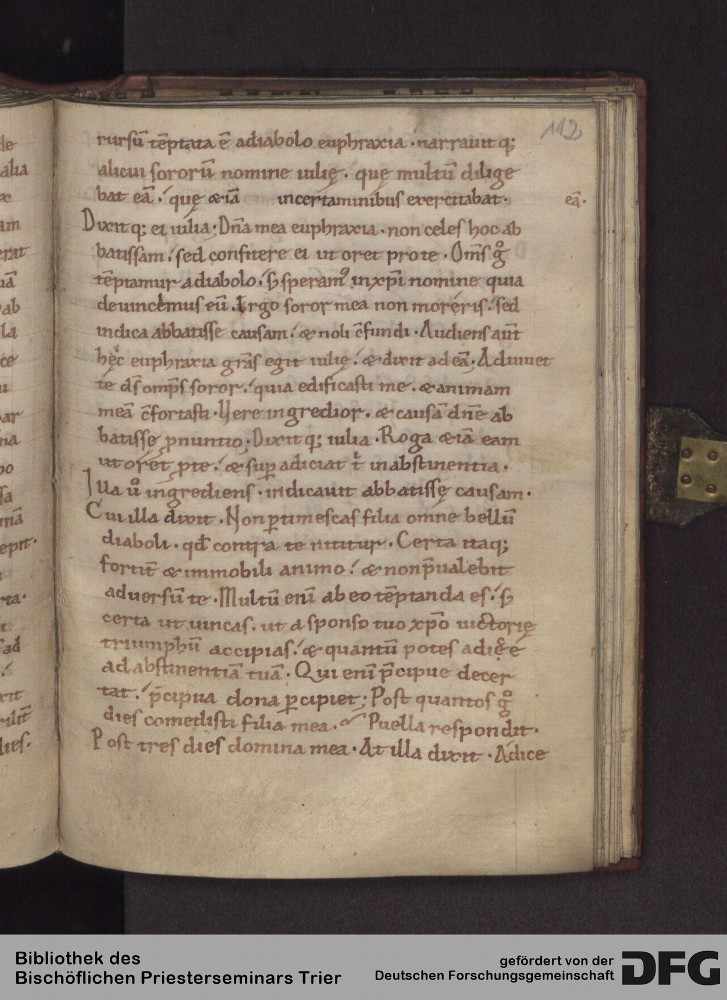 112
rursũ tẽptata ẽ adiabolo euphraxia · narrauitq;
alicui sororũ nomine iulię · quę multũ dilige
bat eã · quę & iã incertaminibus exercitabat · eã ·
Dixitq; ei iulia · Dña mea euphraxia · non celes hoc ab
batissam · sed confitere ei ut oret pro te · Om̃s g̊
tẽptamur adiabolo · s; speram᷒ inxp̃i nomine quia
deuincemus eũ · Ergo soror mea non moreris · sed
indica abbatisse causam · & noli c̃fundi · Audiens aũt
hęc euphraxia grãs egit iulię · & dixit ad eã · Adiuuet
te d̃s omp̃s soror · quia edificasti me · & animam
meã c̃fortasti · Here ingredior · & causã dñe ab
batissę ꝓnuntio · Dixitq; iulia · Roga & iã eam
ut oret ꝓ te · & suꝑ adiciat t̃ inabstinentia ·
Illa ů ingrediens · indicauit abbatissę causam ·
Cui illa dixit · Non ꝑtimescas filia omne bellũ
diaboli · qđ contra te nititur · Certa itaq;
fortit̃ & immobili animo · & non p̃ualebit
aduersũ te · Multũ enĩ ab eo tẽptanda es · s;
certa ut uincas · ut a sponso tuo xp̃o uictorię
triumphũ accipias · & quantũ potes adice
ad abstinentiã tuã · Qui enĩ p̃cipue decer
tat · p̃cipua dona ꝑcipiet; Post quantos g̊
dies comedisti filia mea · Puella respondit ·
Post tres dies domina mea · At illa dixit · Adice
Bibliothek des
Bischöflichen Priesterseminars Trier
gefördert von der
Deutschen Forschungsgemeinschaft
DFG